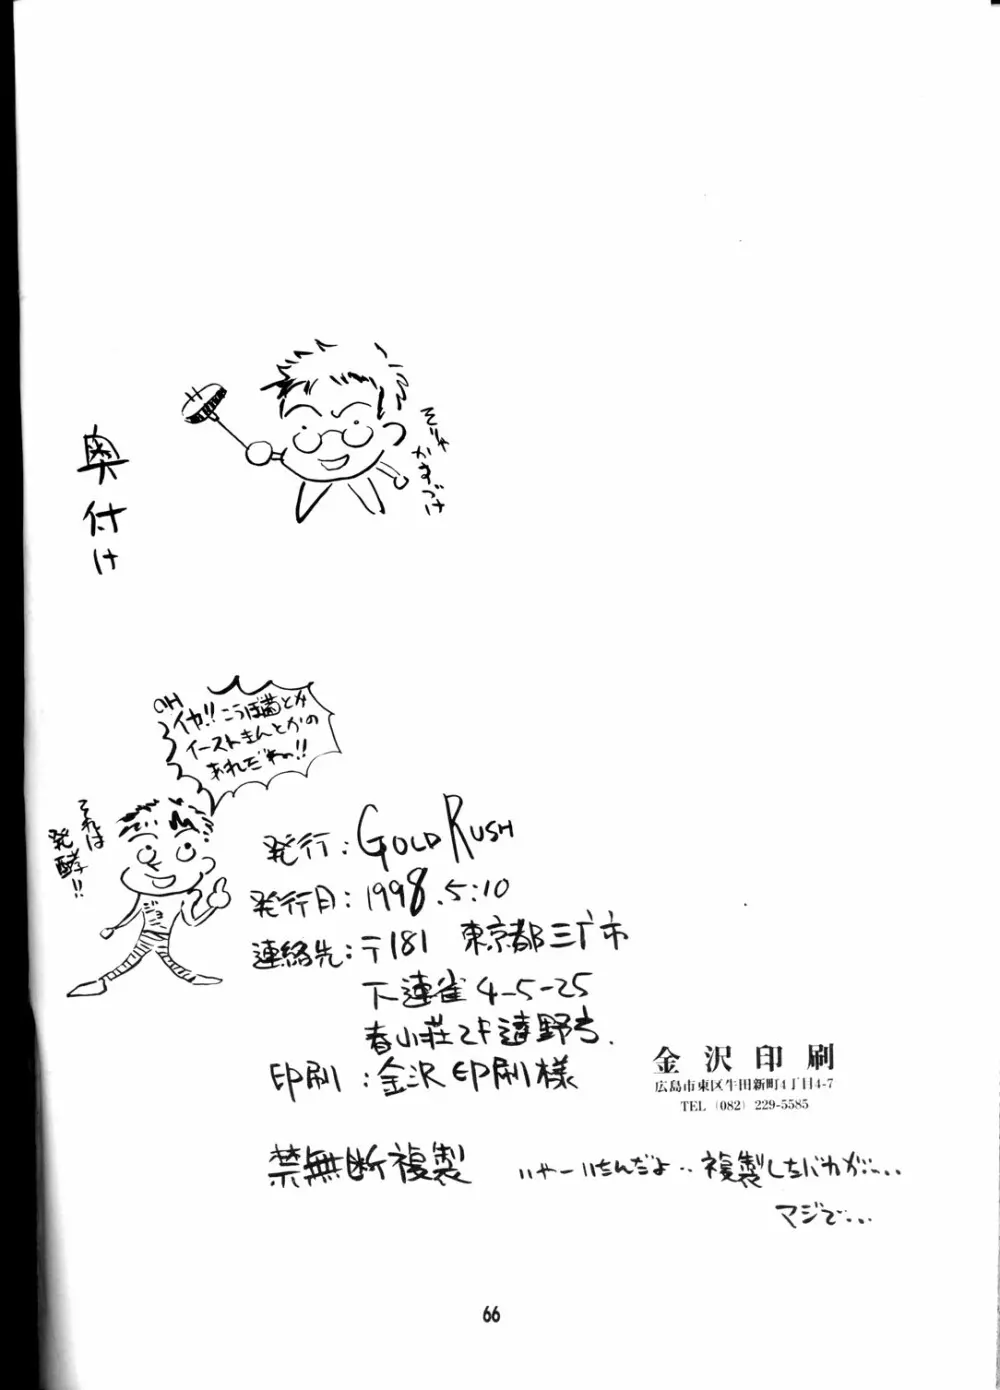 奥付け
そりゃ
かすづけ
OH
イヤ!!こうぼ菌とか
イーストきんとかの
あれだわい!!
それは
発酵!!
発行:GOLD RUSH
発行日:1998.5.10
連絡先:〒181 東京都三广市
下連雀4-5-25
春山荘2F遠野方.
印刷:金沢印刷様
金沢印刷
広島市東区牛田新町4丁目4-7
TEL (082) 229-5585
禁無断複製
いやーいたんだよ..複製したバカが....
マジで...
66